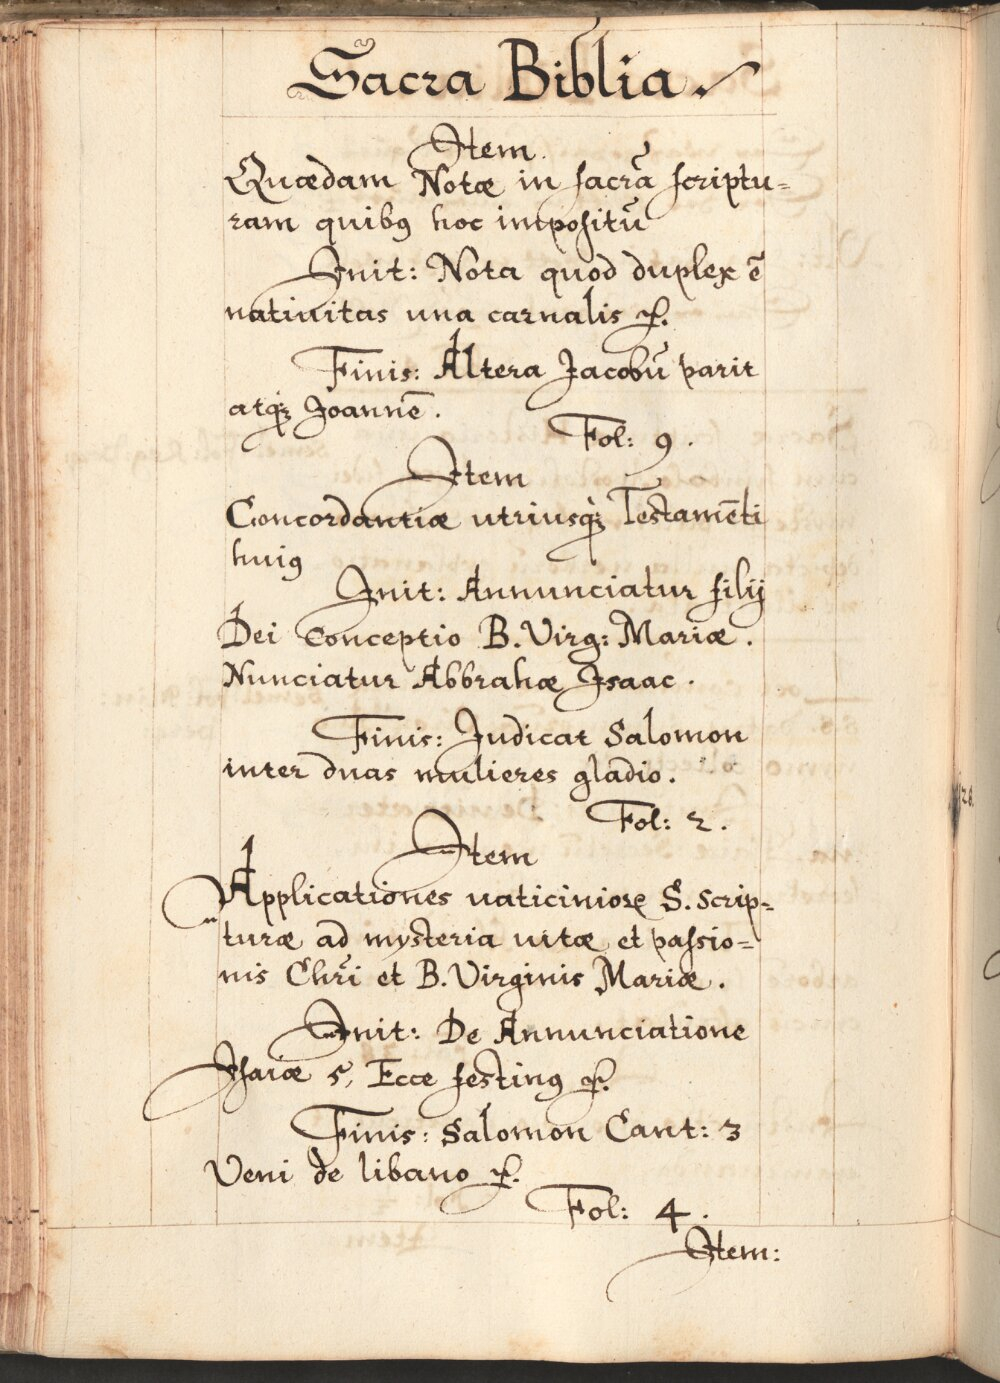 Sacra Biblia.
Item.
Quædam Notæ in sacrā scriptu=
ram quibꝯ hoc impositū
Init: Nota quod duplex ē
natiuitas una carnalis ꝛc.
Finis: Altera Jacobū parit
atqꝫ Joannē.
Fol: 9.
Item
Concordantiæ utriusqꝫ Testamēti
huiꝯ
Init: Annunciatur filij
Dei Conceptio B. Virg: Mariæ.
Nunciatur Abbrahæ Isaac.
Finis: Judicat Salomon
inter duas mulieres gladio.
Fol: 2.
Item
Applicationes uaticinioꝝ S. Scrip=
turæ ad mysteria uitæ et passio=
nis Chr̄i et B. Virginis Mariæ.
Init: De Annunciatione
Isaiæ 5, Ecce festinꝯ ꝛc.
Finis: Salomon Cant: 3
Veni de libano ꝛc.
Fol: 4.
Item: